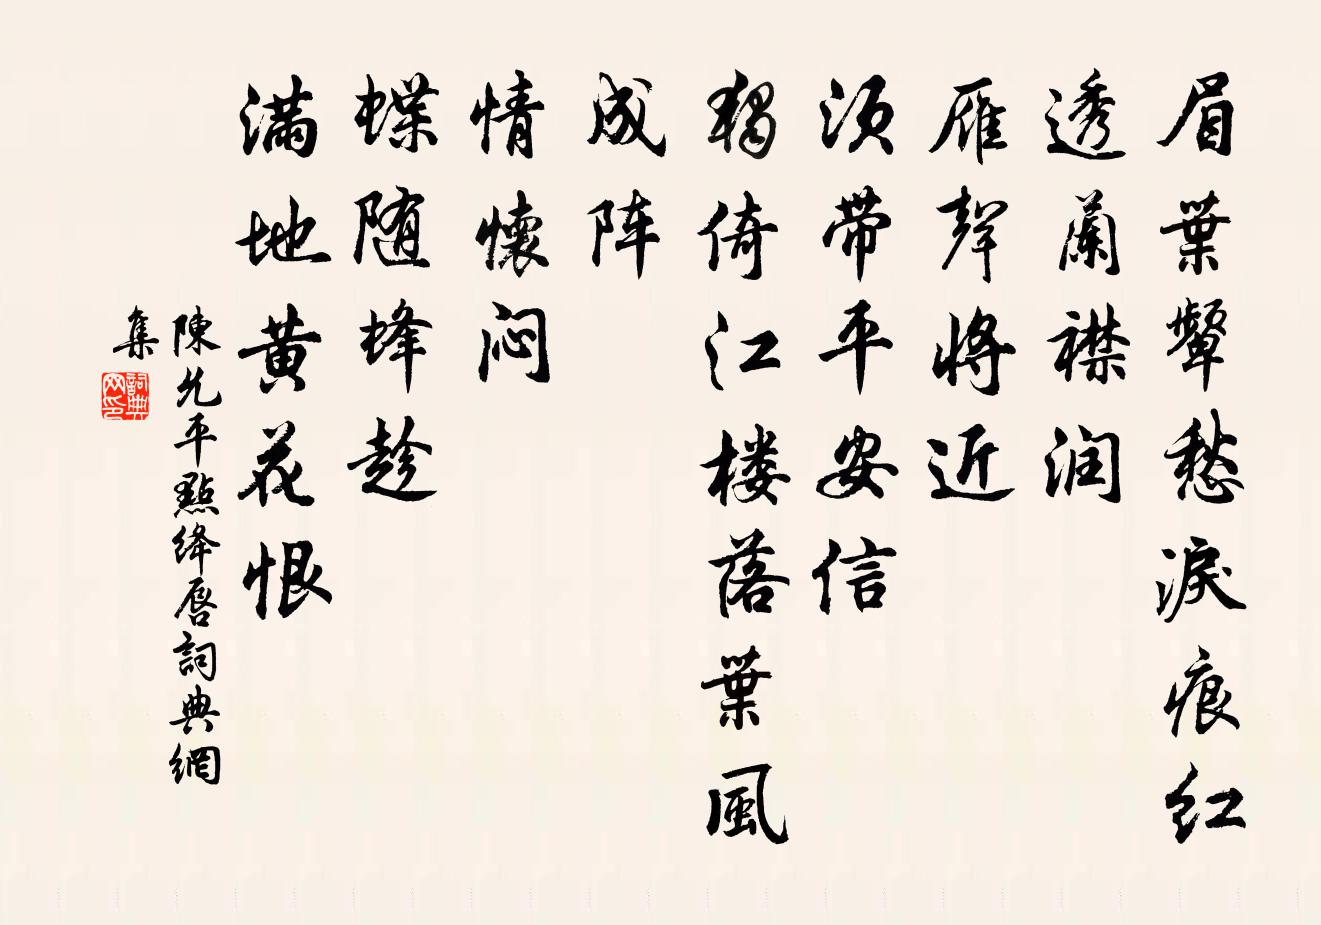 眉葉顰愁淚痕红
透蘭襟润
雁聲將近
须帶平安信
獨倚江楼落葉風
成阵
情懷闷
蝶随蜂趁
滿地黄花恨
陳允平點絳唇詞典網
集
詞典网印